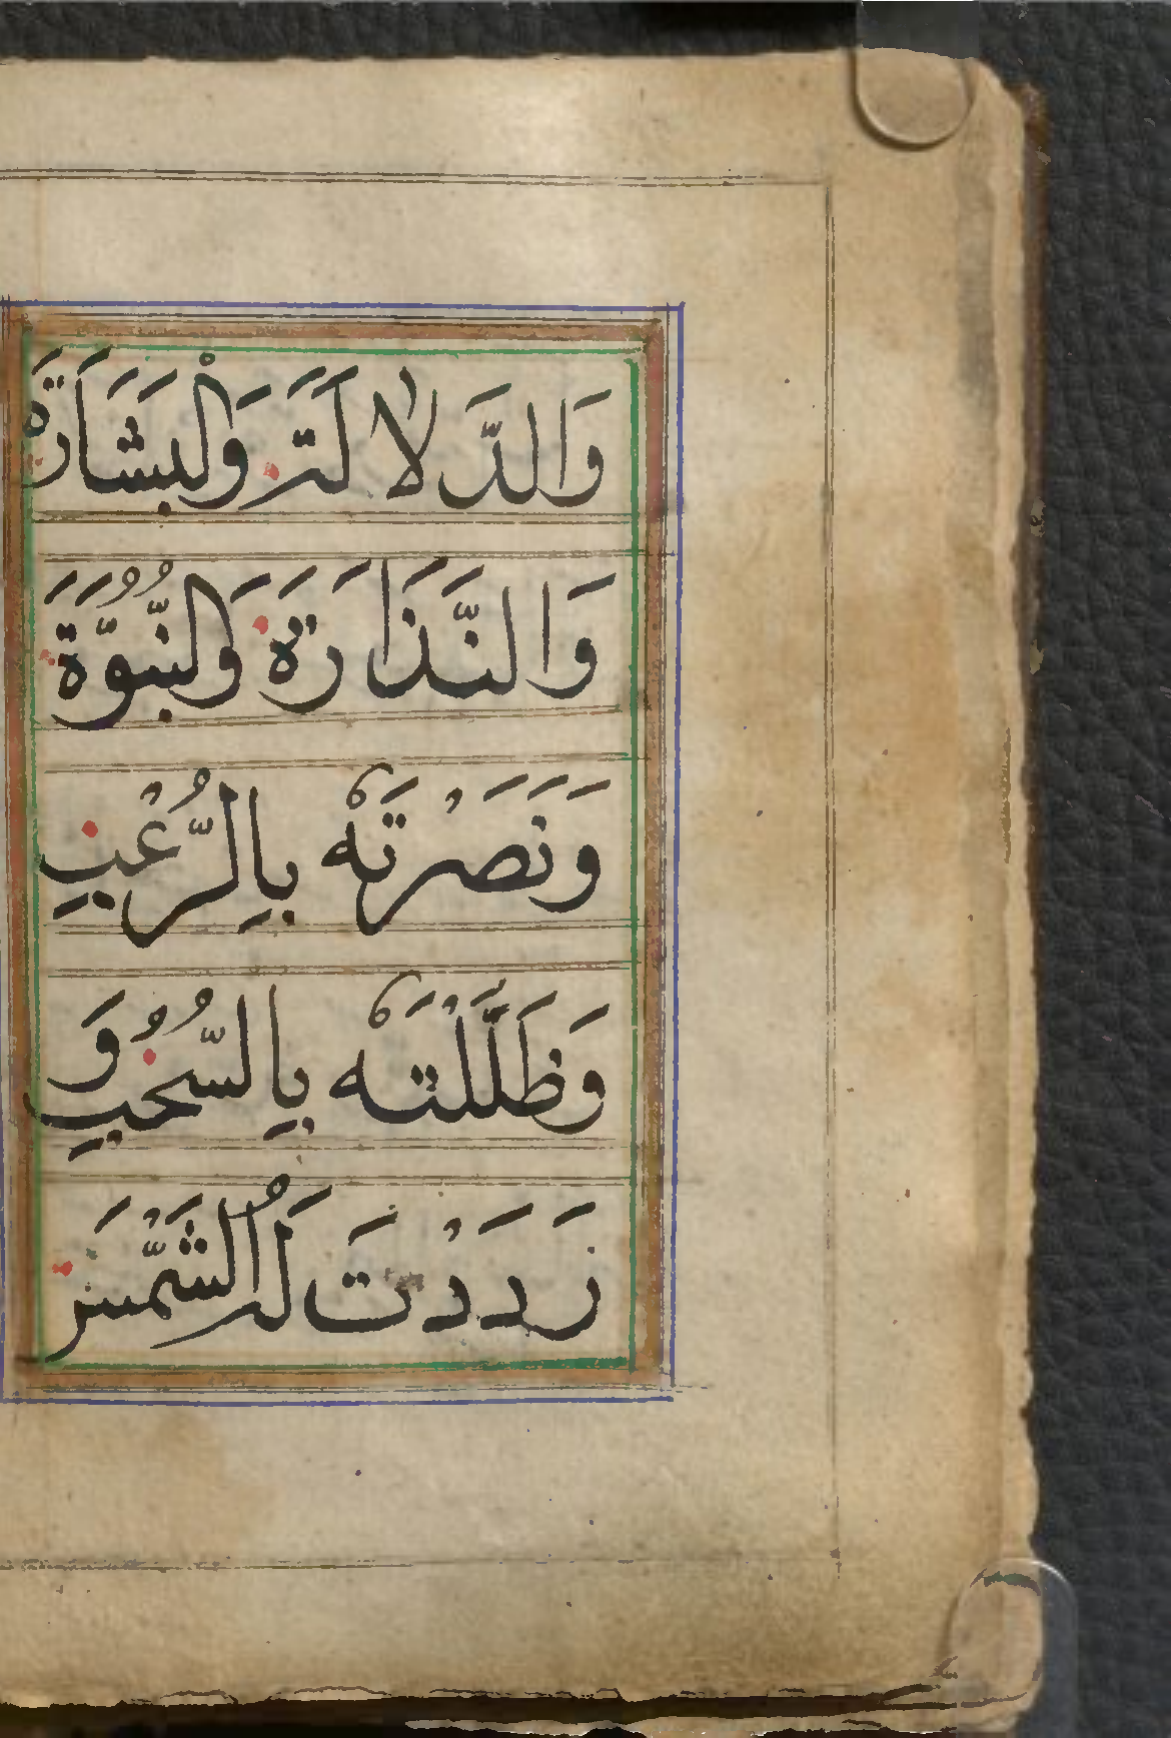 وَالدَّلَالَةَ وَلْبَشَارَةَ
وَالنَّذَارَةَ وَلنُّبُوَّةَ
وَنَصَرْتَهُ بِالرُّعْبِ
وَظَلَّلْتَهُ بِالسُّحْبِ وَ
رَدَدْتَ لَهُ الشَّمْسَ